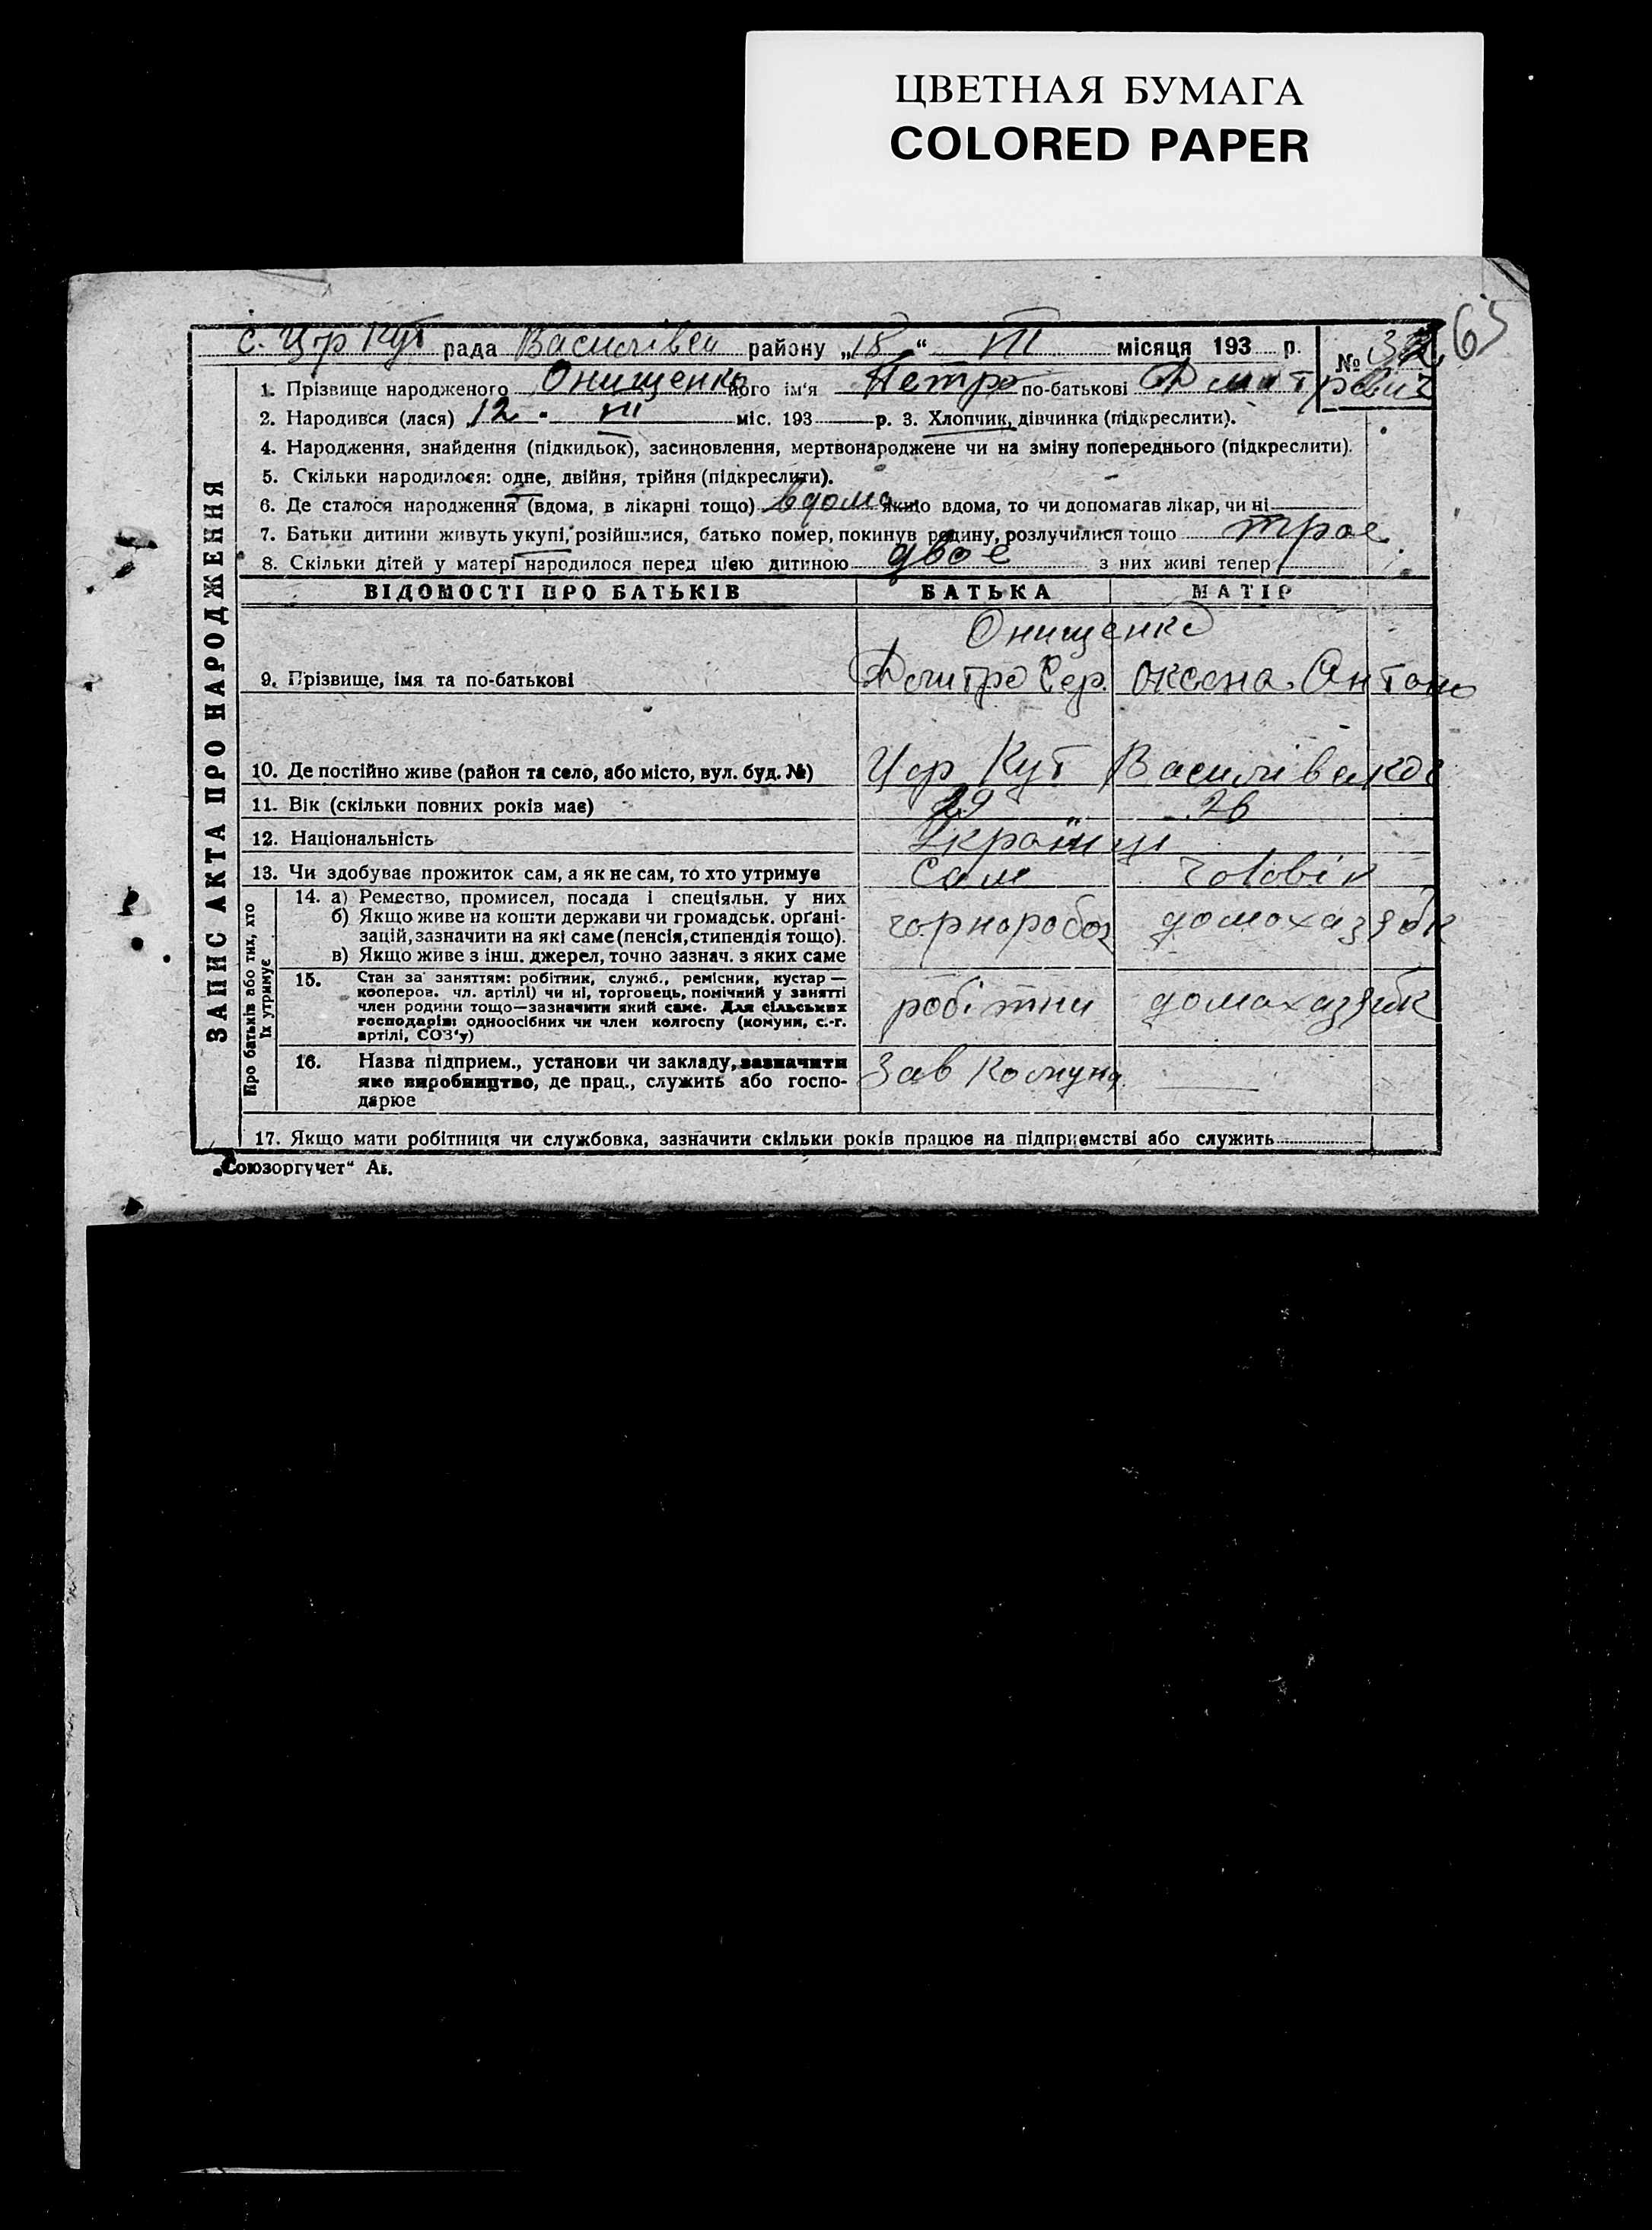 ЦВЕТНАЯ БУМАГА
COLORED PAPER
65
с. Цар Кут рада Василівсь району „18“ III місяця 193 р. № 32
1. Прізвище народженого Онищенко його ім'я Петро по-батькові Дмитрович
2. Народився (лася) 12 - III міс. 193 р. 3. Хлопчик, дівчинка (підкреслити).
4. Народження, знайдення (підкидьок), засиновлення, мертвонароджене чи на зміну попереднього (підкреслити).
5. Скільки народилося: одне, двійня, трійня (підкреслити).
6. Де сталося народження (вдома, в лікарні тощо) вдома якщо вдома, то чи допомагав лікар, чи ні
7. Батьки дитини живуть укупі, розійшлися, батько помер, покинув родину, розлучилися тощо
8. Скільки дітей у матері народилося перед цією дитиною двоє з них живі тепер троє
ЗАПИС АКТА ПРО НАРОДЖЕННЯ
ВІДОМОСТІ ПРО БАТЬКІВ БАТЬКА МАТІР
Онищенко
9. Прізвище, імя та по-батькові Дмитро Сер. Оксана Антоно
10. Де постійно живе (район та село, або місто, вул. буд. №) Цар Кут Василівсько
11. Вік (скільки повних років має) 29 26
12. Національність Українці
13. Чи здобуває прожиток сам, а як не сам, то хто утримує Сам Чоловік
Про батьків або тих, хто їх утримує
14. а) Ремество, промисел, посада і спеціяльн. у них
б) Якщо живе на кошти держави чи громадськ. орґані-
зацій, зазначити на які саме (пенсія, стипендія тощо).
в) Якщо живе з інш. джерел, точно зазнач. з яких саме
чорнороб домохазяйк
15. Стан за заняттям: робітник, служб., ремісник, кустар —
кооперов. чл. артілі) чи ні, торговець, помічний у занятті
член родини тощо—зазначити який саме. Для сільських
господарів: одноосібних чи член колгоспу (комуни, с.-г.
артілі, СОЗ'у)
робітни домохазяйк
16. Назва підприєм., установи чи закладу, зазначити
яке виробництво, де прац., служить або госпо-
дарює
Зав Комуна —
17. Якщо мати робітниця чи службовка, зазначити скільки років працює на підприємстві або служить
„Союзоргучет“